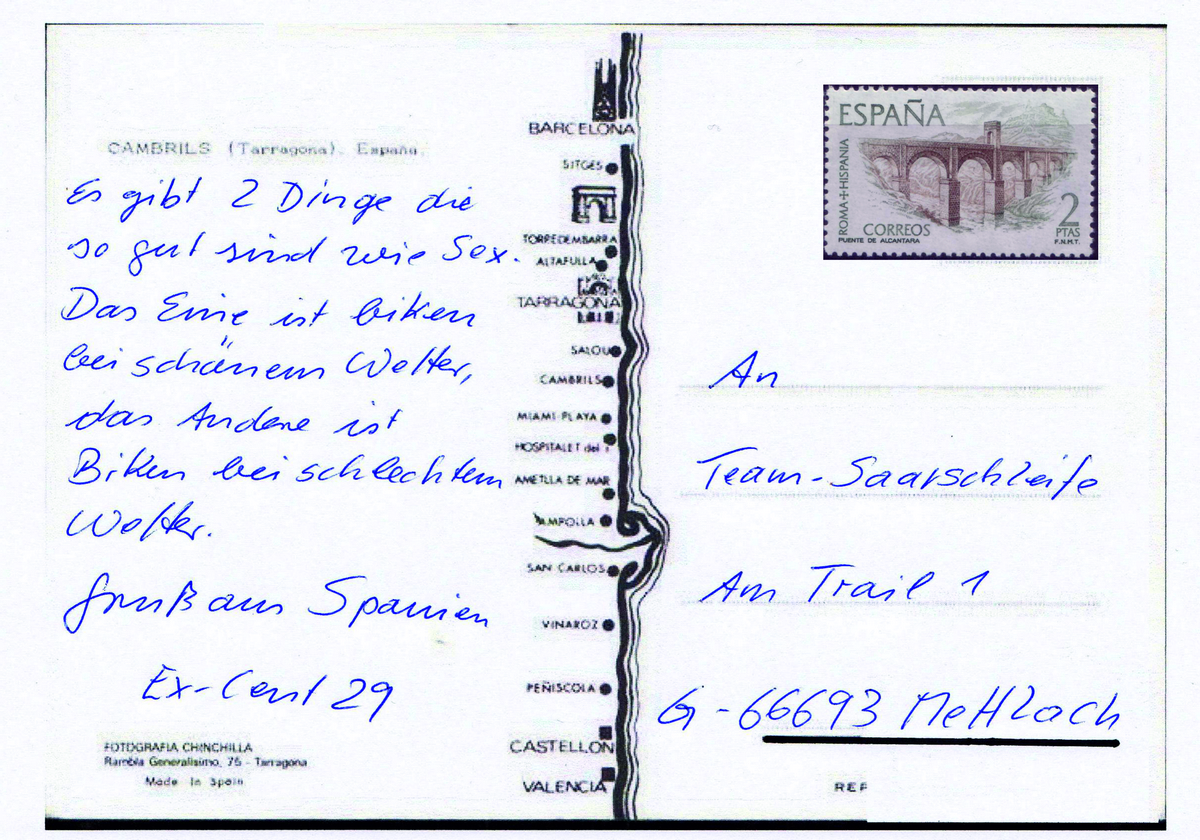 CAMBRILS (Tarragona). España.
Es gibt 2 Dinge die
so gut sind wie Sex.
Das Eine ist biken
bei schönem Wetter,
das Andere ist
Biken bei schlechtem
Wetter.
Gruß aus Spanien
Ex-Cent 29
FOTOGRAFIA CHINCHILLA
Rambla Generalisimo, 76 - Tarragona
Made in Spain
BARCELONA
SITGES
TORREDEMBARRA
ALTAFULLA
TARRAGONA
SALOU
CAMBRILS
MIAMI-PLAYA
HOSPITALET del
AMETLLA DE MAR
AMPOLLA
SAN CARLOS
VINAROZ
PEÑISCOLA
CASTELLON
VALENCIA
ESPAÑA
ROMA+HISPANIA
CORREOS
PUENTE DE ALCANTARA
2
PTAS
F.N.M.T.
An
Team-Saarschleife
Am Trail 1
G-66693 Mettlach
REP